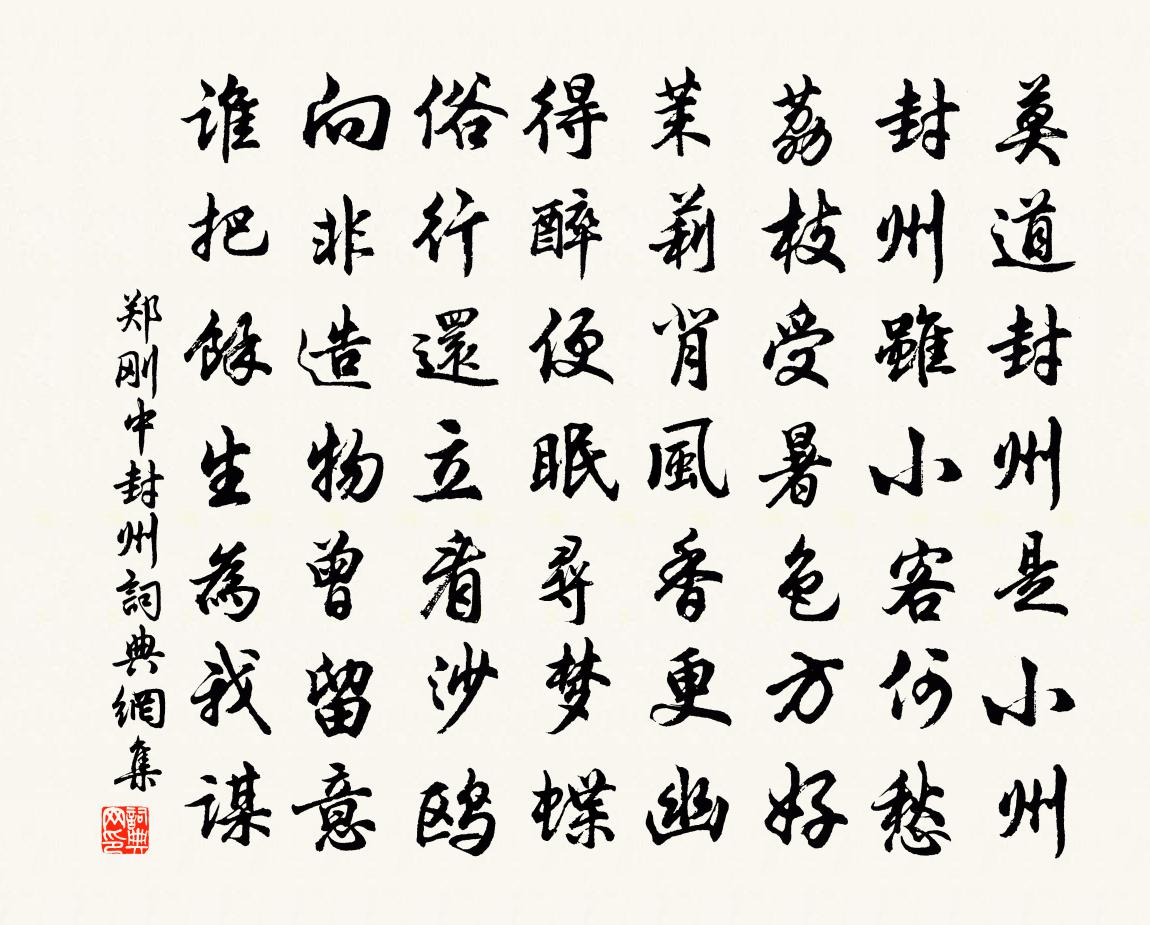 莫道封州是小州
封州雖小客何愁
荔枝受暑色方好
茉莉背風香更幽
得醉便眠尋梦蝶
俗行還立看沙鸥
向非造物曾留意
谁把餘生為我謀
郑刚中封州詞典網集
詞典网印